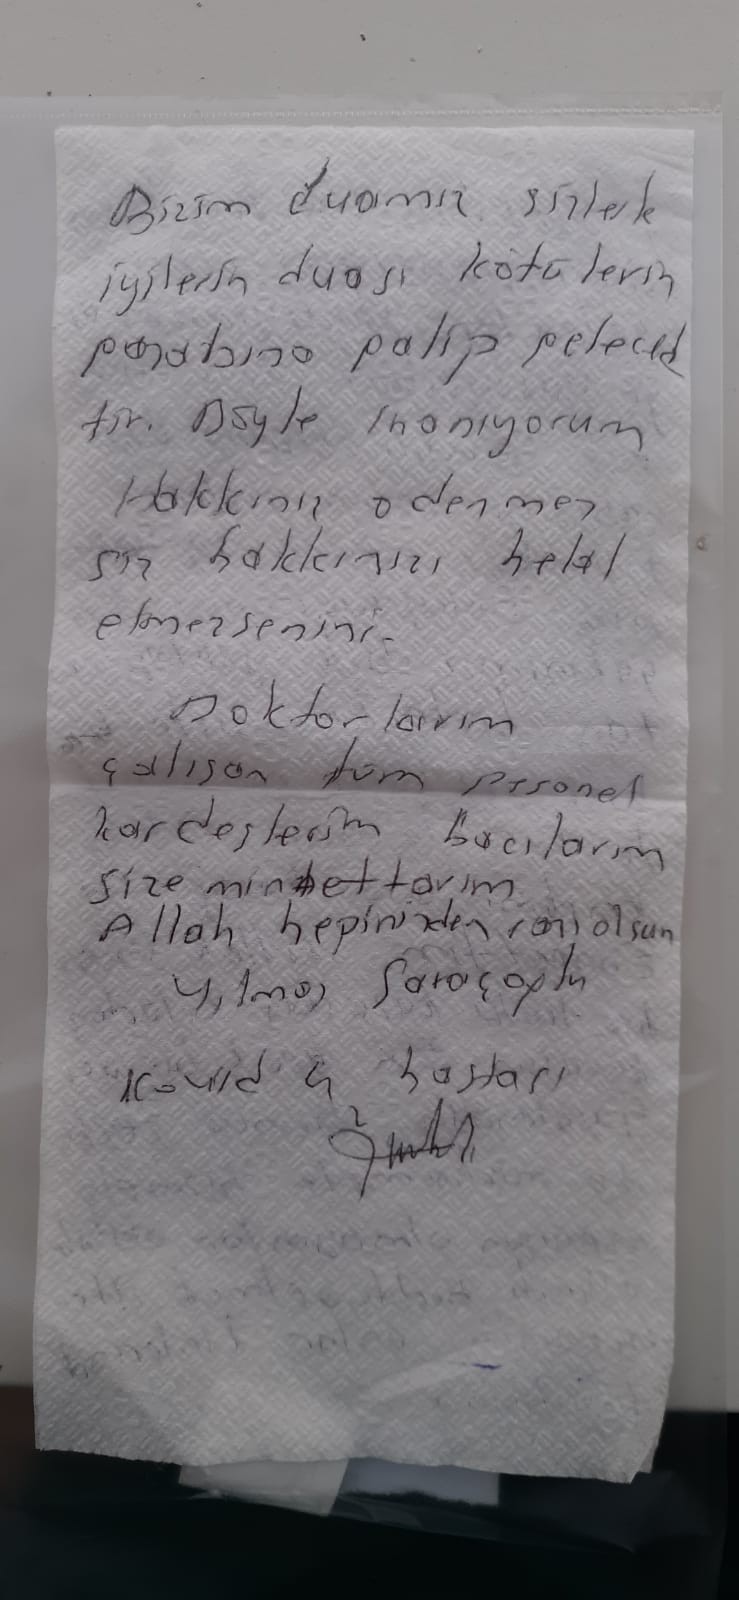 Bizim duamız sizlerle
iyilerin duası kötülerin
galip gelecek
tir. Böyle inanıyorum
Hakkınız ödenmez
siz hakkınızı helal
etmezseniniz.
Doktorlarım
çalışan tüm prsonel
kardeşlerim bacılarım
size minnettarım
Allah hepinizden razı olsun
Yılmaz Saraçoğlu
Kovid hastası